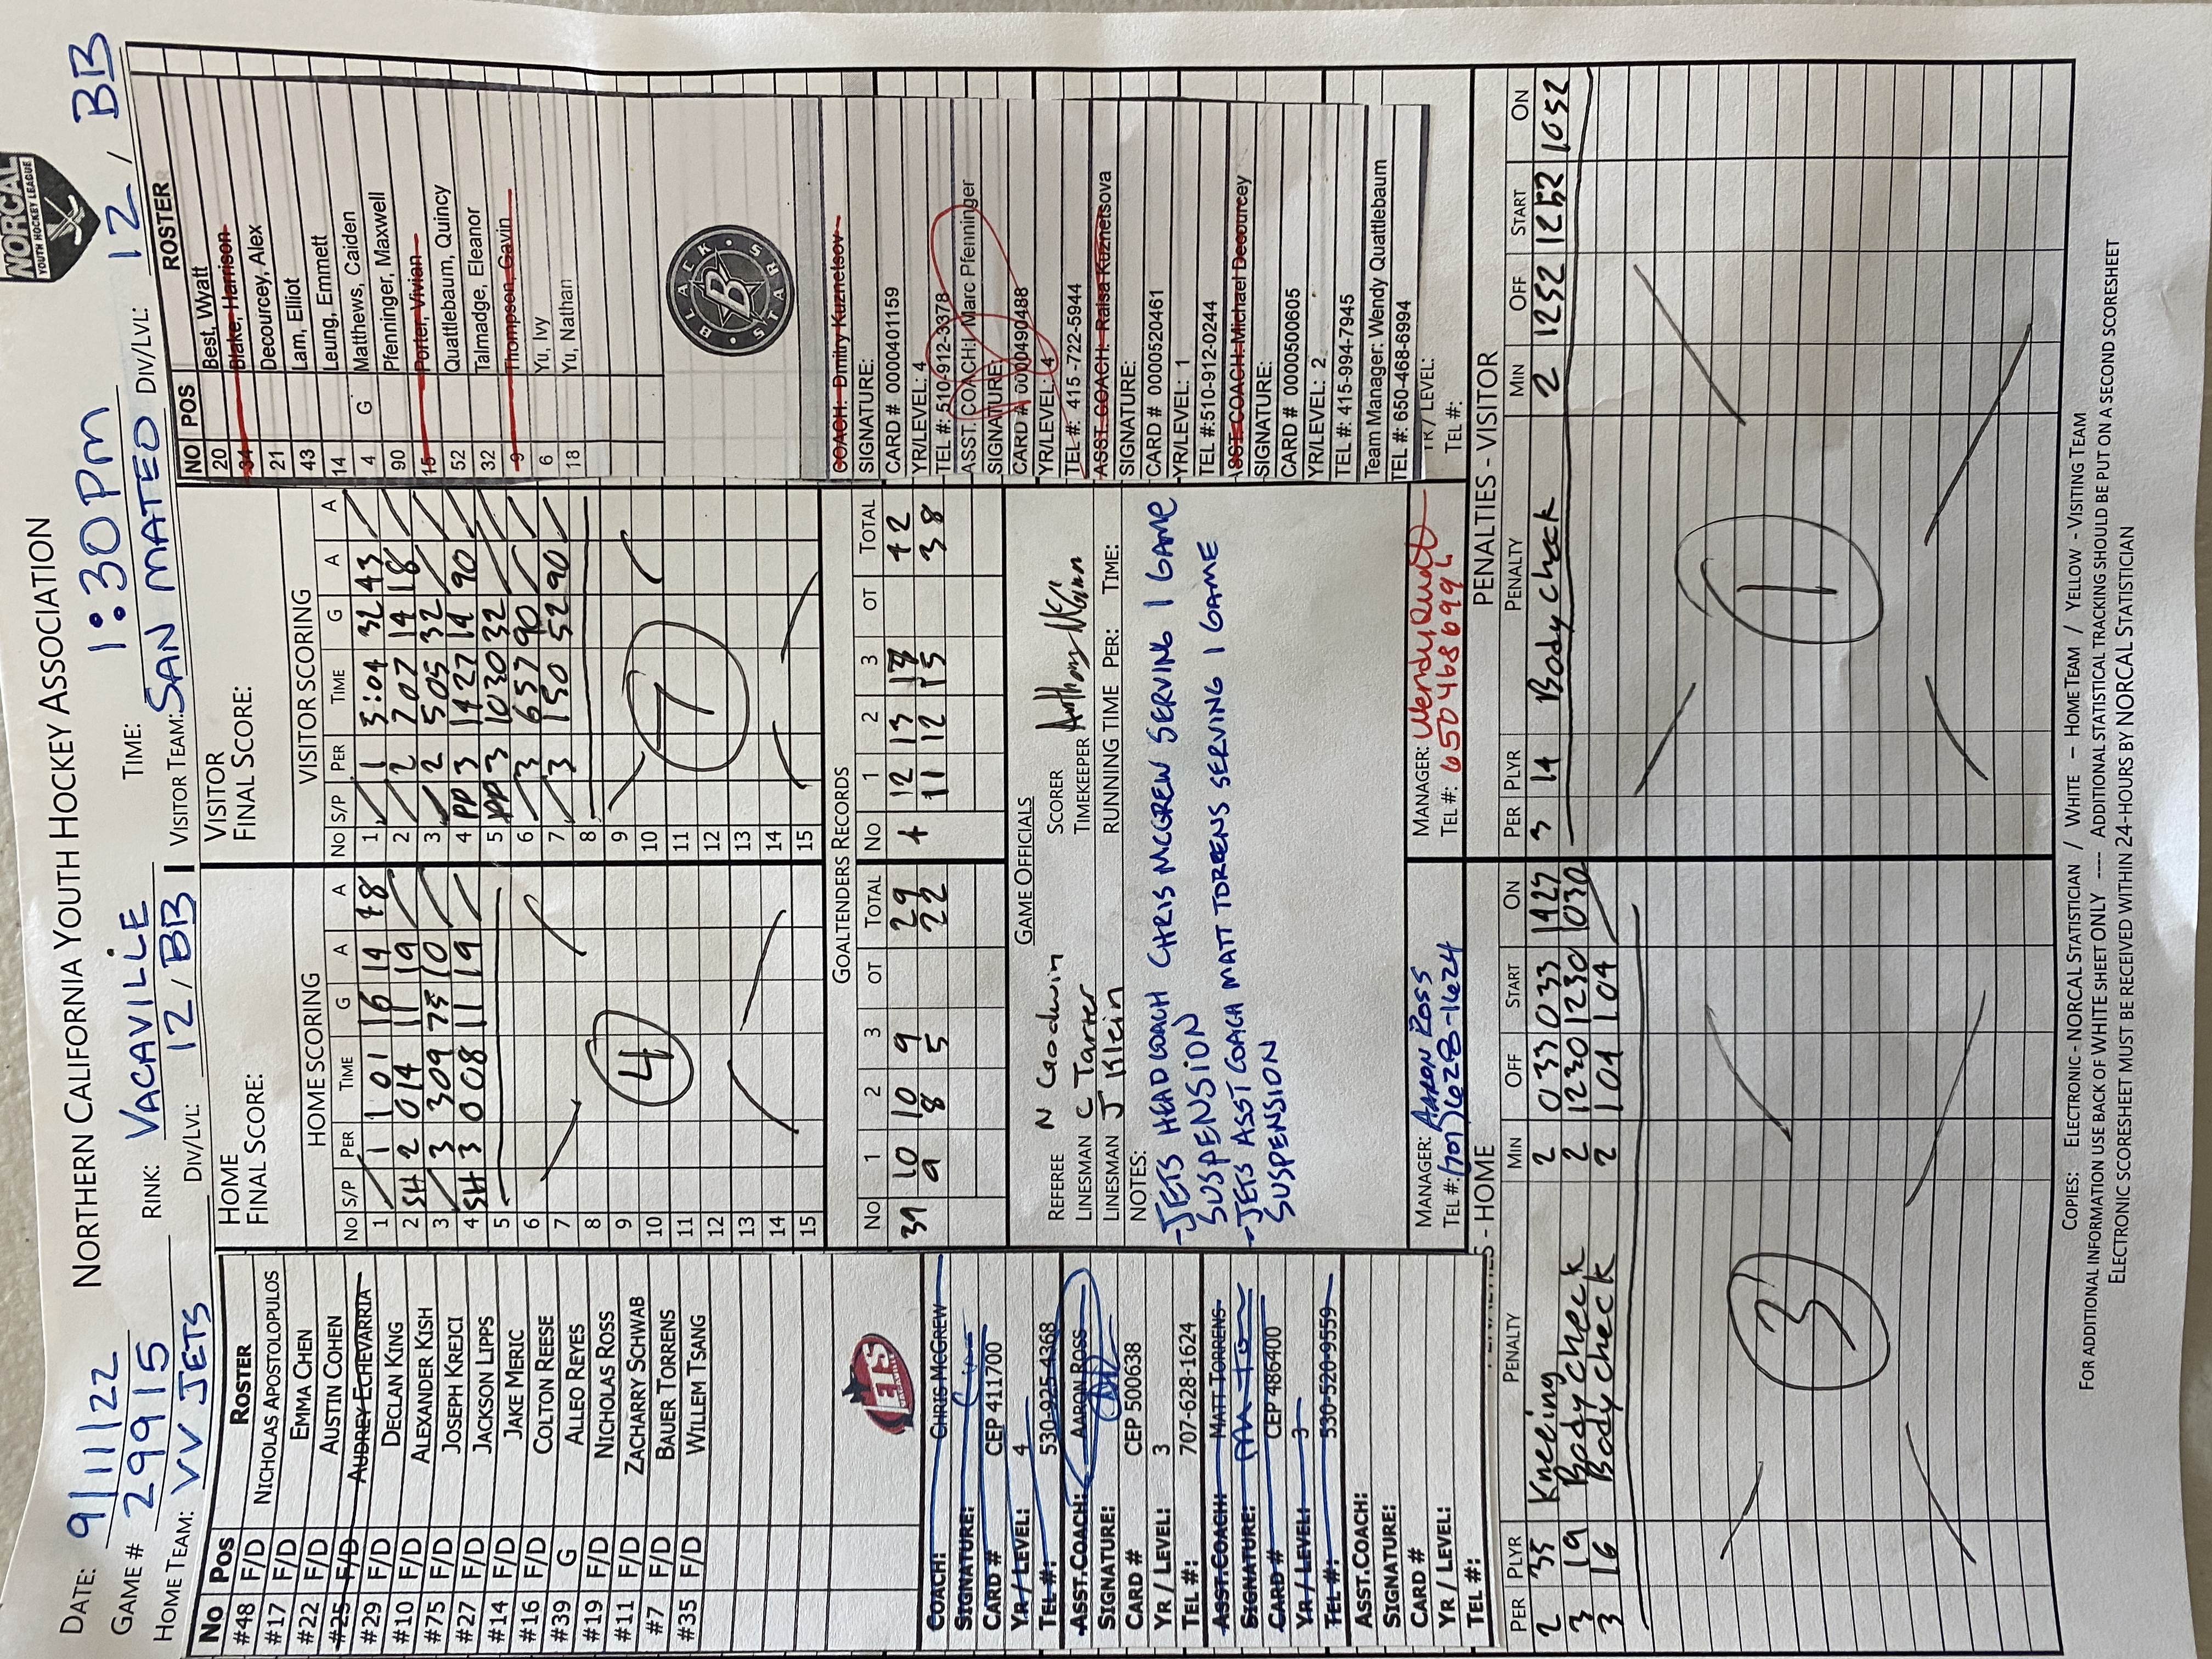 DATE: 9/11/22 NORTHERN CALIFORNIA YOUTH HOCKEY ASSOCIATION
NORCAL
YOUTH HOCKEY LEAGUE
GAME # 29915 RINK: VACAVILLE TIME: 1:30PM
HOME TEAM: VV JETS DIV/LVL: 12/BB VISITOR TEAM: SAN MATEO DIV/LVL: 12/BB
No Pos ROSTER
#48 F/D NICHOLAS APOSTOLOPULOS
#17 F/D EMMA CHEN
#22 F/D AUSTIN COHEN
#25 F/D AUDREY ECHEVARRIA
#29 F/D DECLAN KING
#10 F/D ALEXANDER KISH
#75 F/D JOSEPH KREJCI
#27 F/D JACKSON LIPPS
#14 F/D JAKE MERIC
#16 F/D COLTON REESE
#39 G ALLEO REYES
#19 F/D NICHOLAS ROSS
#11 F/D ZACHARRY SCHWAB
#7 F/D BAUER TORRENS
#35 F/D WILLEM TSANG
JETS
COACH: CHRIS MCGREW
SIGNATURE:
CARD # CEP 411700
YR / LEVEL: 4
TEL #: 530-925-4368
ASST.COACH: AARON ROSS
SIGNATURE:
CARD # CEP 500638
YR / LEVEL: 3
TEL #: 707-628-1624
ASST.COACH: MATT TORRENS
SIGNATURE: M Tor
CARD # CEP 486400
YR / LEVEL: 3
TEL #: 530-520-9559
ASST.COACH:
SIGNATURE:
CARD #
YR / LEVEL:
TEL #:
HOME
FINAL SCORE:
HOME SCORING
NO S/P PER TIME G A A
1 1 1 01 16 14 48
2 SH 2 014 11 19
3 3 309 75 10
4 SH 3 008 11 19
5
6
7
8
9
10
11
12
13
14
15
4
VISITOR
FINAL SCORE:
VISITOR SCORING
NO S/P PER TIME G A A
1 1 3:04 32 43
2 2 707 14 18
3 2 505 32
4 PP 3 1427 14 90
5 PP 3 1030 32
6 3 657 90
7 3 150 52 90
8
9
10
11
12
13
14
15
7
GOALTENDERS RECORDS
NO 1 2 3 OT TOTAL NO 1 2 3 OT TOTAL
39 10 10 9 29 4 12 13 17 42
9 8 5 22 11 12 15 38
GAME OFFICIALS
REFEREE N Goodwin SCORER
LINESMAN C Tarter TIMEKEEPER Anthony McGinn
LINESMAN J Klein RUNNING TIME PER: TIME:
NOTES:
-JETS HEAD COACH CHRIS MCGREW SERVING 1 GAME
SUSPENSION
-JETS ASST COACH MATT TORRENS SERVING 1 GAME
SUSPENSION
MANAGER: AARON ROSS MANAGER: Wendy Quatt
TEL #: (707)628-1624 TEL #: 650 468 6994
NO POS ROSTER
20 Best, Wyatt
34 Blake, Harrison
21 Decourcey, Alex
43 Lam, Elliot
14 Leung, Emmett
4 G Matthews, Caiden
90 Pfenninger, Maxwell
15 Porter, Vivian
52 Quattlebaum, Quincy
32 Talmadge, Eleanor
9 Thompson, Gavin
6 Yu, Ivy
18 Yu, Nathan
BLACK STARS
B
COACH: Dmitry Kuznetsov
SIGNATURE:
CARD # 0000401159
YR/LEVEL: 4
TEL #: 510-912-3378
ASST. COACH: Marc Pfenninger
SIGNATURE:
CARD # 0000490488
YR/LEVEL: 4
TEL #: 415-722-5944
ASST. COACH: Raisa Kuznetsova
SIGNATURE:
CARD # 0000520461
YR/LEVEL: 1
TEL #:510-912-0244
ASST. COACH: Michael Decourcey
SIGNATURE:
CARD # 0000500605
YR/LEVEL: 2
TEL #: 415-994-7945
Team Manager: Wendy Quattlebaum
TEL #: 650-468-6994
YR / LEVEL:
TEL #:
PENALTIES - HOME
PER PLYR PENALTY MIN OFF START ON
2 35 Kneeing 2 033 033 1427
3 19 Body check 2 1230 1230 1030
3 16 Body check 2 104 104
3
PENALTIES - VISITOR
PER PLYR PENALTY MIN OFF START ON
3 14 Body check 2 1252 1252 1052
1
COPIES: ELECTRONIC - NORCAL STATISTICIAN / WHITE – HOME TEAM / YELLOW - VISITING TEAM
FOR ADDITIONAL INFORMATION USE BACK OF WHITE SHEET ONLY ---- ADDITIONAL STATISTICAL TRACKING SHOULD BE PUT ON A SECOND SCORESHEET
ELECTRONIC SCORESHEET MUST BE RECEIVED WITHIN 24-HOURS BY NORCAL STATISTICIAN